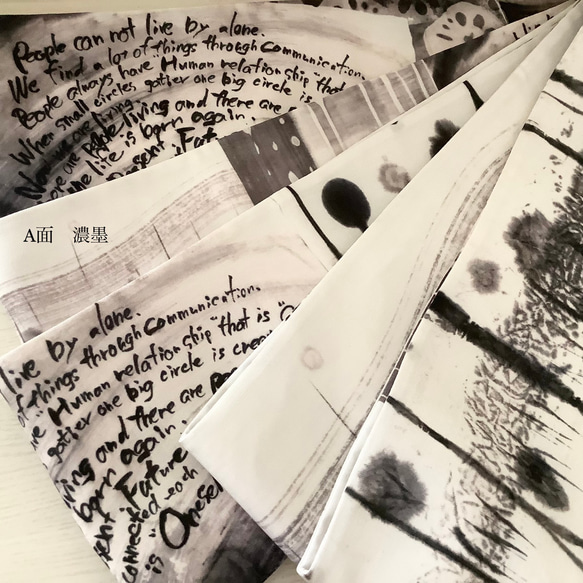 People can not live by alone.
We find a lot of things through communication.
People always have Human relationship "that
When small circles gather one big circle is
Now we are living and there are
are people
the life is born again.
Present Fut
A面 濃墨
live by alone.
of things through communication.
Human relationship "that is "
gather one big circle is crea
ving and there are Peo
born again
sent Future
connected each
is "Oneself